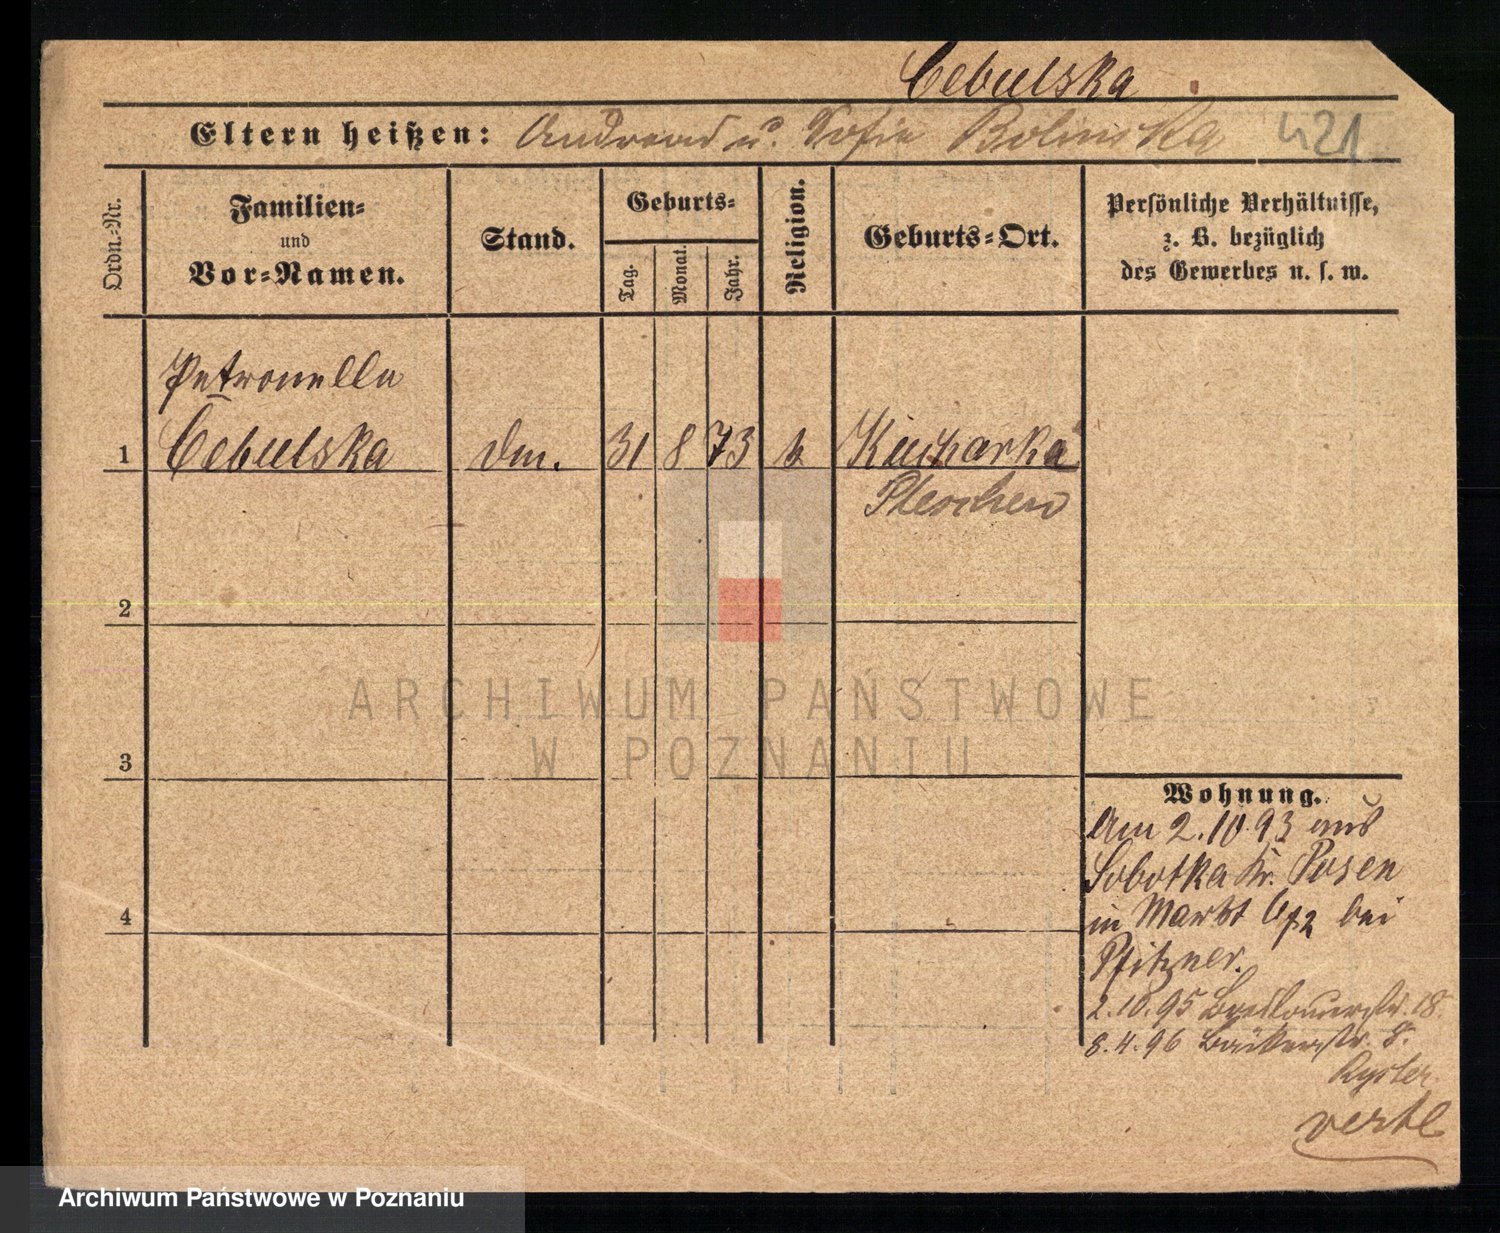 Cebulska
Eltern heißen: Andreas u. Sofie Bolinska 421
Ordn.=Nr.
Familien=
und
Vor=Namen.
Stand.
Geburts=
Tag.
Monat.
Jahr.
Religion.
Geburts=Ort.
Persönliche Verhältnisse,
z. B. bezüglich
des Gewerbes u. s. w.
Petronella
1 Cebulska dm. 31 8 73 k Kucharka
Pleschen
2
3
4
Wohnung.
Am 2.10.93 aus
Sobotka Kr. Posen
in Markt bei
Pfitzner.
2.10.95 Breslauerstr. 18.
8.4.96 Bäckerstr. 8.
verte
ARCHIWUM PAŃSTWOWE
W POZNANIU
Archiwum Państwowe w Poznaniu